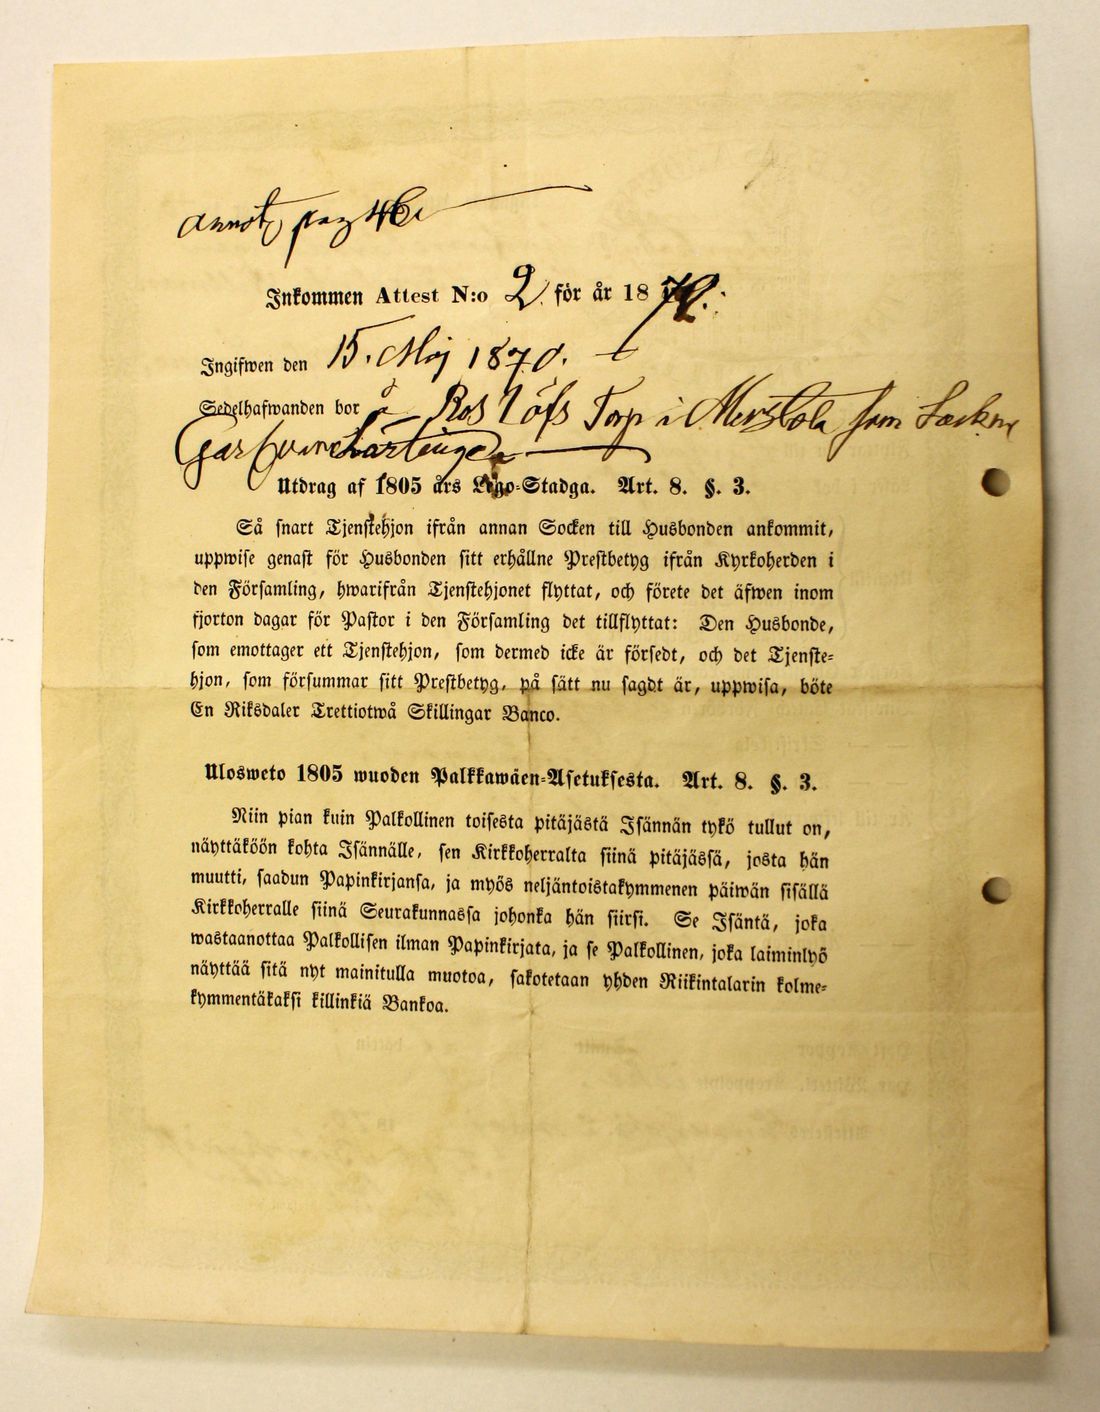 annot pag 46
Inkommen Attest N:o 2. för år 1870.
Ingifwen den 15. Maj 1870.
Sedelhafwanden bor å Torp i som
Garfware Lärlinge
Utdrag af 1805 års Lego-Stadga. Art. 8. §. 3.
Så snart Tjenstehjon ifrån annan Socken till Husbonden ankommit,
uppwise genast för Husbonden sitt erhållne Prestbetyg ifrån Kyrkoherden i
den Församling, hwarifrån Tjenstehjonet flyttat, och förete det äfwen inom
fjorton dagar för Pastor i den Församling det tillflyttat: Den Husbonde,
som emottager ett Tjenstehjon, som dermed icke är försedt, och det Tjenste-
hjon, som försummar sitt Prestbetyg, på sätt nu sagdt är, uppwisa, böte
En Riksdaler Trettiotwå Skillingar Banco.
Ulosweto 1805 wuoden Palkkawäen-Asetuksesta. Art. 8. §. 3.
Niin pian kuin Palkollinen toisesta pitäjästä Isännän tykö tullut on,
näyttäköön kohta Isännälle, sen Kirkkoherralta siinä pitäjässä, josta hän
muutti, saadun Papinkirjansa, ja myös neljäntoistakymmenen päiwän sisällä
Kirkkoherralle siinä Seurakunnassa johonka hän siirsi. Se Isäntä, joka
wastaanottaa Palkollisen ilman Papinkirjata, ja se Palkollinen, joka laiminlyö
näyttää sitä nyt mainitulla muotoa, sakotetaan yhden Riikintalarin kolme-
kymmentäkaksi killinkiä Bankoa.